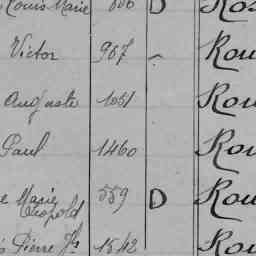 Louis Marie 886 D Ros
Victor 967 Rou
Auguste 1051 Rou
Paul 1460 Rou
Marie Léopold 559 D Rou
Pierre Jh 1542 Rou